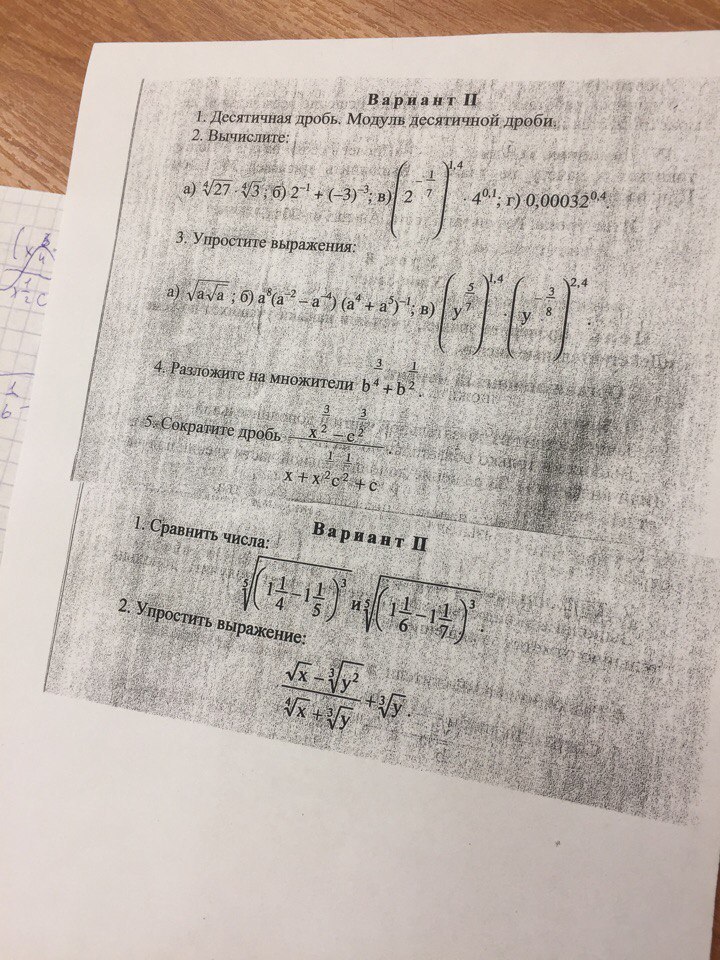 Вариант II
1. Десятичная дробь. Модуль десятичной дроби.
2. Вычислите:
а) ⁴√27 · ⁴√3; б) 2⁻¹ + (–3)⁻³; в) (2^(-1/7))^1,4 · 4^0,1; г) 0,00032^0,4.
3. Упростите выражения:
а) √(a√a) ; б) a⁸(a⁻² – a⁻⁴) (a⁴ + a⁵)⁻¹; в) (y^(5/7))^1,4 · (y^(-3/8))^2,4.
4. Разложите на множители b^(3/4) + b^(1/2).
5. Сократите дробь (x^(3/2) – c^(3/2)) / (x + x^(1/2)c^(1/2) + c)
Вариант II
1. Сравнить числа:
⁵√((1 1/4 – 1 1/5)³) и ⁵√((1 1/6 – 1 1/7)³).
2. Упростить выражение:
(√x – ³√(y²)) / (⁴√x + ³√y) + ³√y.